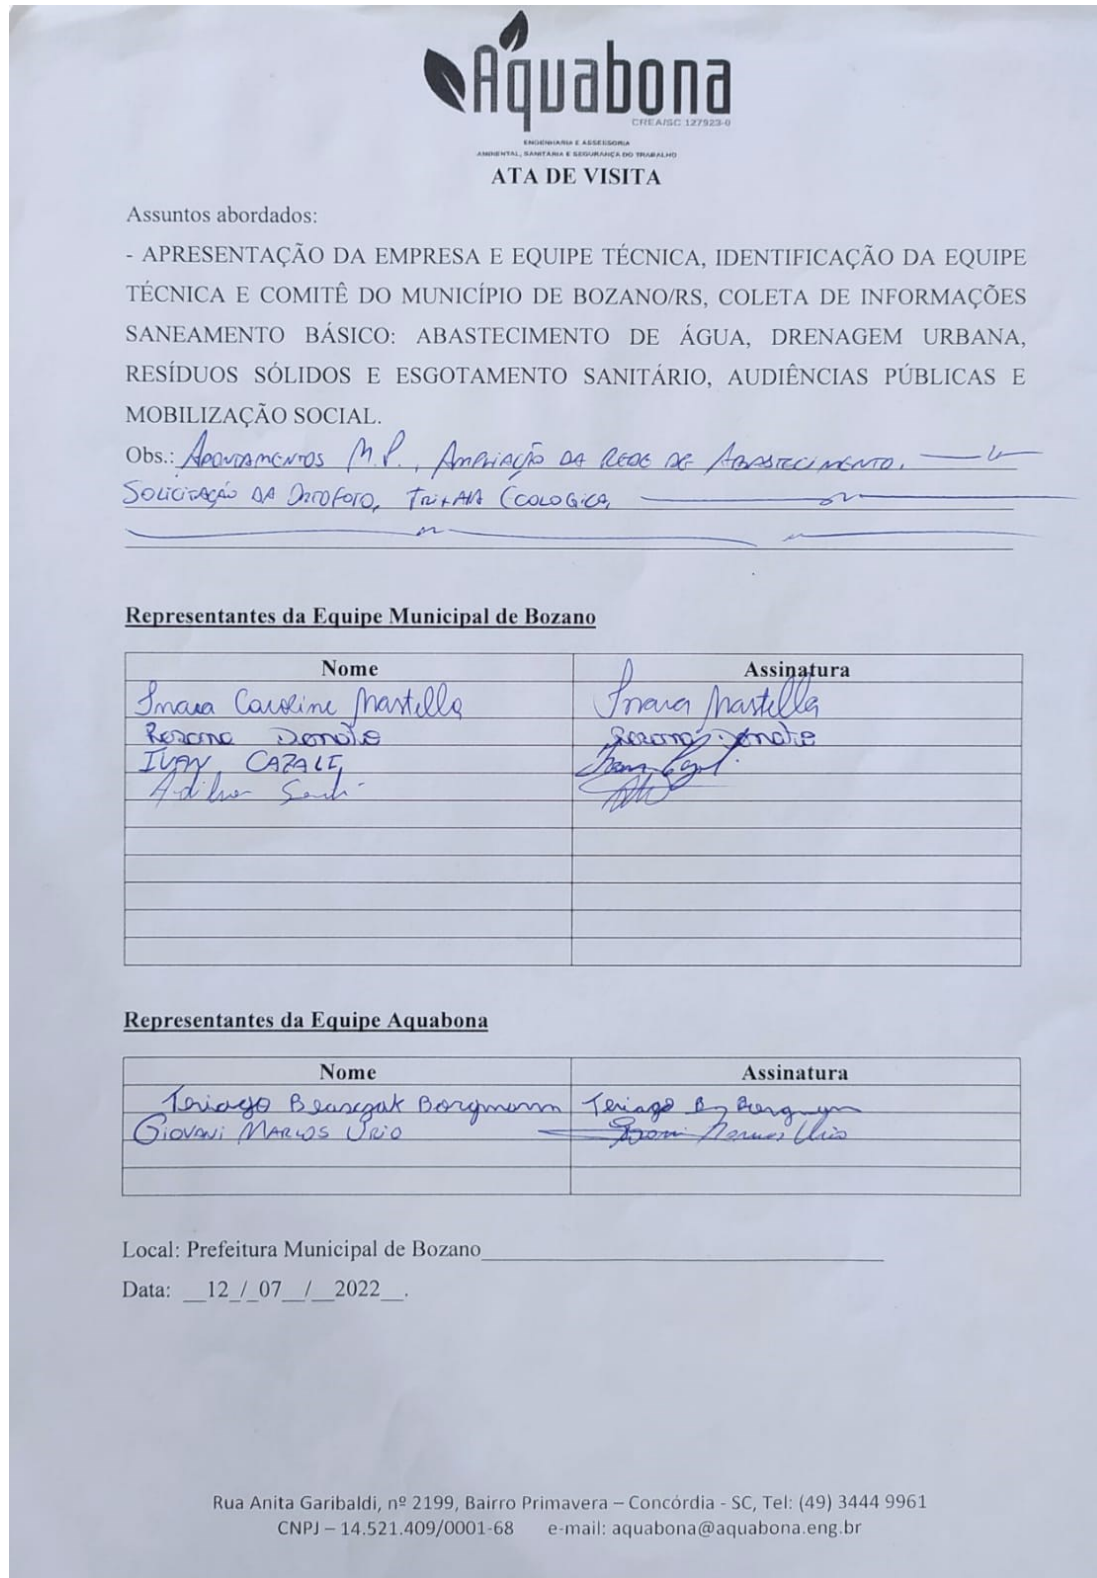 Aquabona
CREA/SC 127923-0
ENGENHARIA E ASSESSORIA
AMBIENTAL, SANITÁRIA E SEGURANÇA DO TRABALHO
ATA DE VISITA
Assuntos abordados:
- APRESENTAÇÃO DA EMPRESA E EQUIPE TÉCNICA, IDENTIFICAÇÃO DA EQUIPE
TÉCNICA E COMITÊ DO MUNICÍPIO DE BOZANO/RS, COLETA DE INFORMAÇÕES
SANEAMENTO BÁSICO: ABASTECIMENTO DE ÁGUA, DRENAGEM URBANA,
RESÍDUOS SÓLIDOS E ESGOTAMENTO SANITÁRIO, AUDIÊNCIAS PÚBLICAS E
MOBILIZAÇÃO SOCIAL.
Obs.: Apontamentos M.P., Ampliação da rede de Abastecimento.
Solicitação da Ortofoto, Ecologica,
Representantes da Equipe Municipal de Bozano
Nome Assinatura
Inara Caroline Mastella Inara Mastella
Rosana Donato Rosana Donato
IVAN CAZALI Ivan
Adilson
Representantes da Equipe Aquabona
Nome Assinatura
Teriago Borgmann Teriago B
Giovani Marcos Urio Giovani Marcos Urio
Local: Prefeitura Municipal de Bozano
Data: __12_/_07__/__2022__.
Rua Anita Garibaldi, nº 2199, Bairro Primavera – Concórdia - SC, Tel: (49) 3444 9961
CNPJ – 14.521.409/0001-68 e-mail: aquabona@aquabona.eng.br